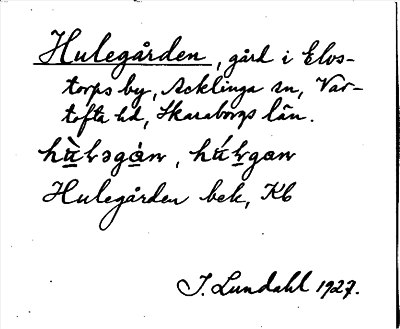 Hulegården, gård i Elvs-
torps by, Acklinga sn, Var-
tofta hd, Skaraborgs län.
hù̱ⱡəgà̱n, hú̱ⱡgan
Hulegården bek, Kb
I. Lundahl 1927.